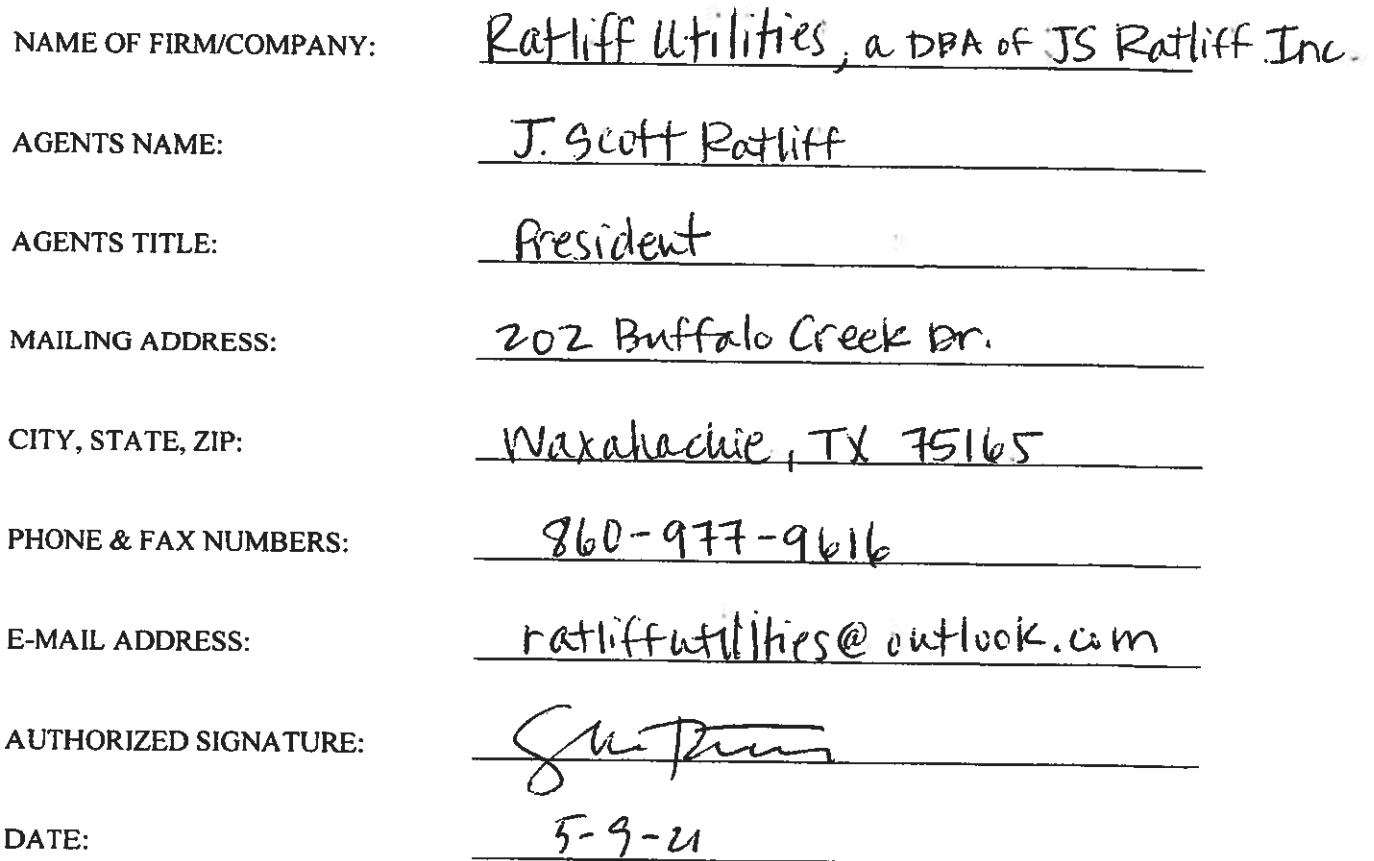 NAME OF FIRM/COMPANY: Ratliff Utilities, a DBA of JS Ratliff Inc.
AGENTS NAME: J. Scott Ratliff
AGENTS TITLE: President
MAILING ADDRESS: 202 Buffalo Creek Dr.
CITY, STATE, ZIP: Waxahachie, TX 75165
PHONE & FAX NUMBERS: 860-977-9616
E-MAIL ADDRESS: ratliffutilities@outlook.com
AUTHORIZED SIGNATURE:
DATE: 5-9-21